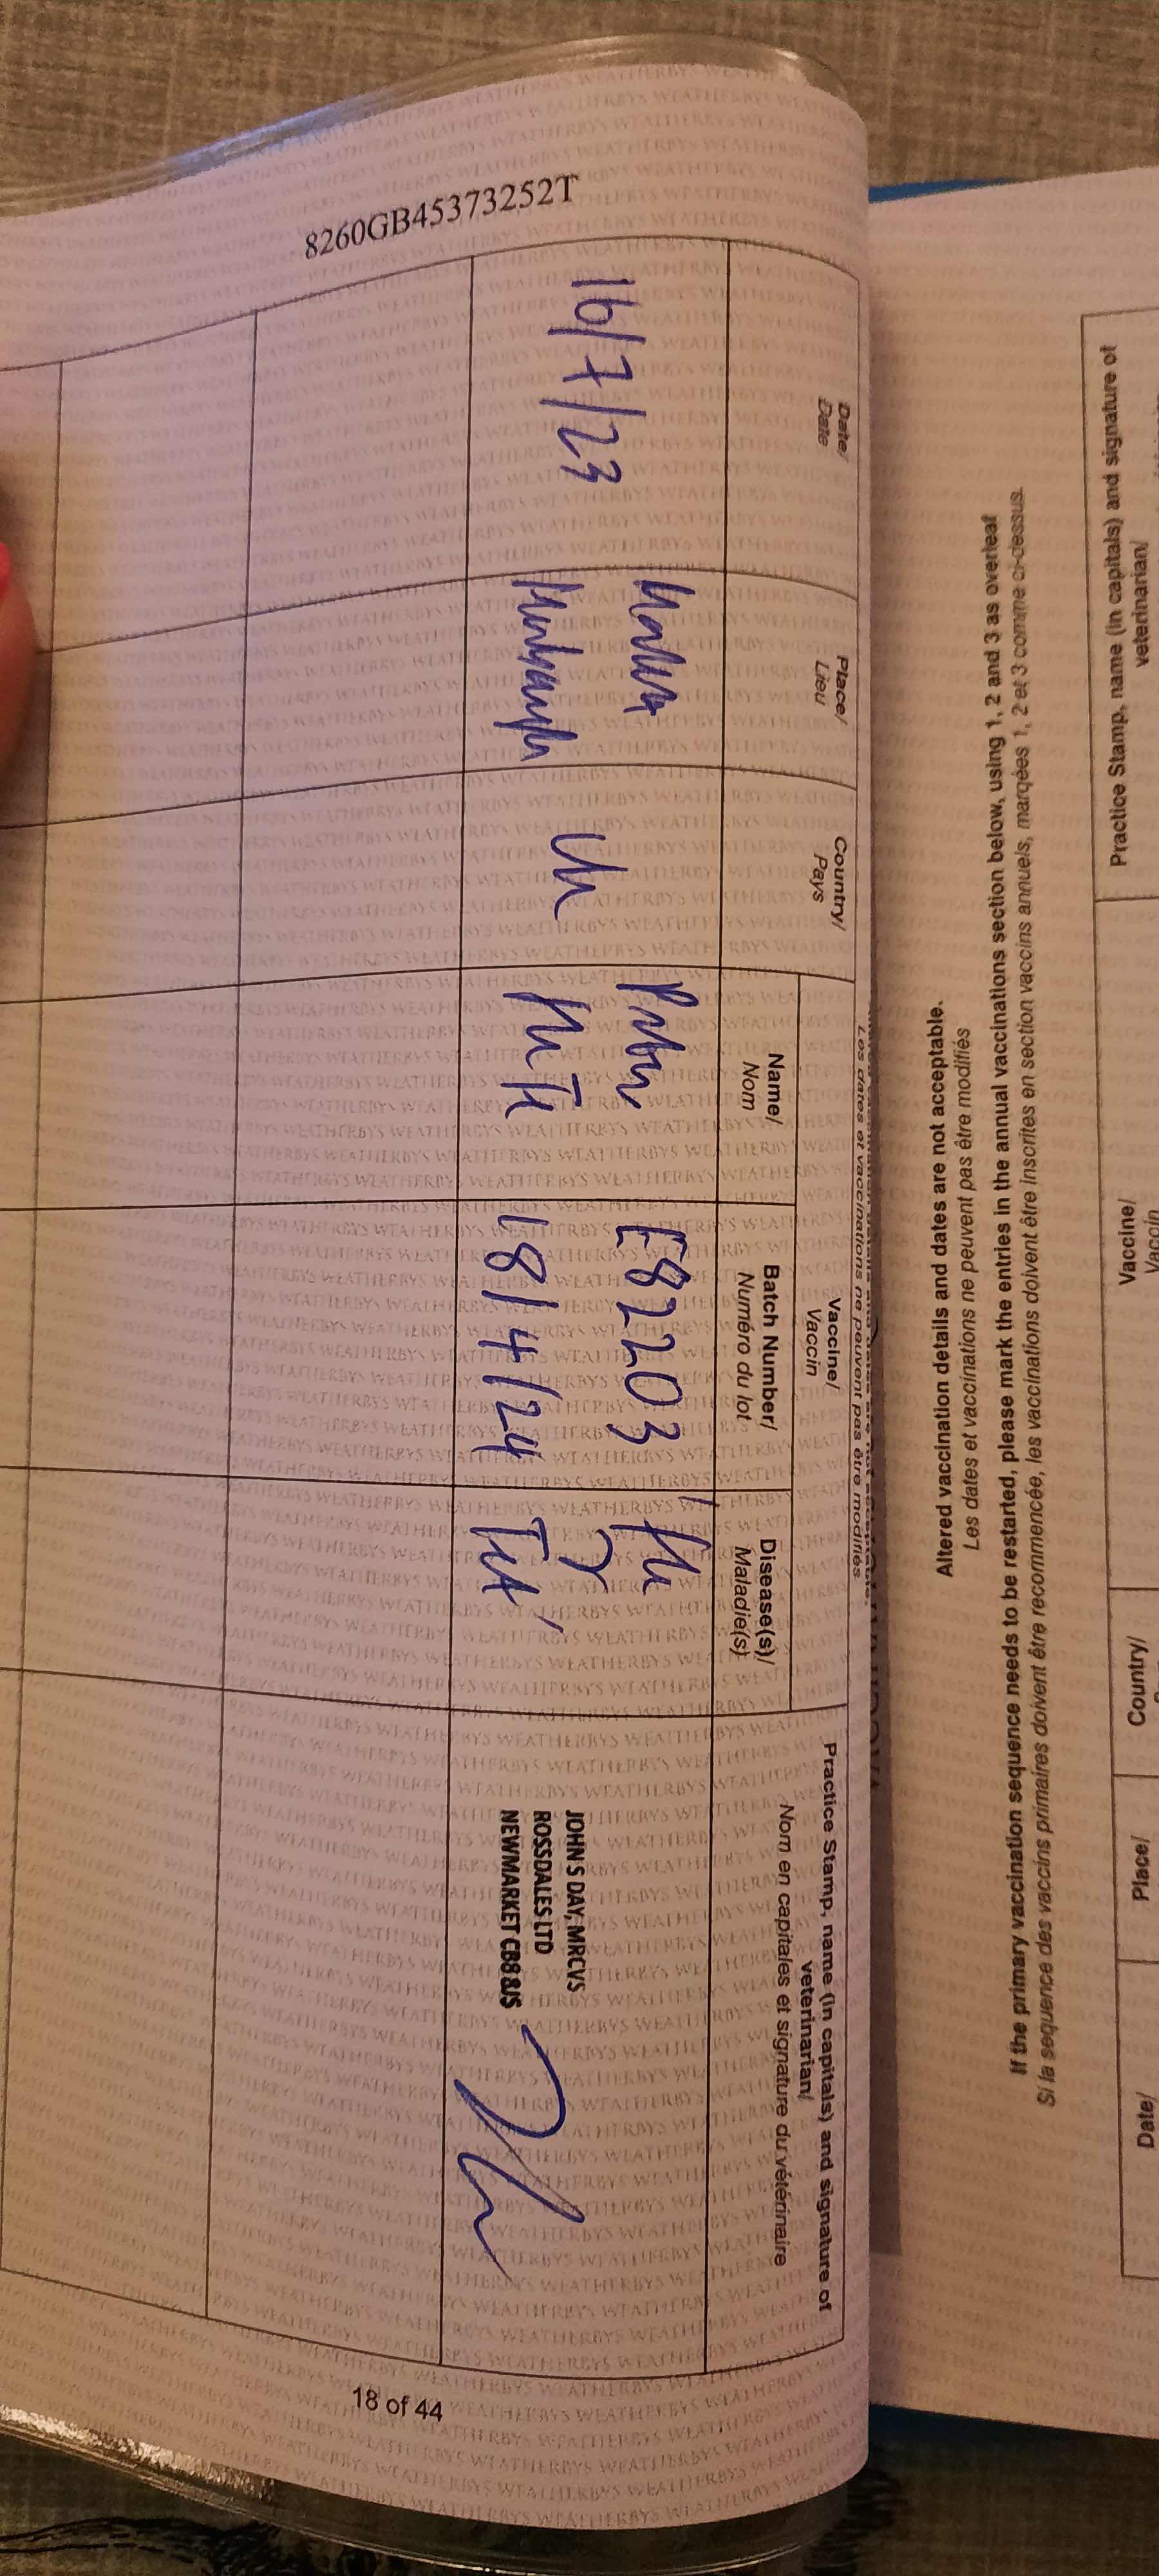 8260GB45373252T
Date/
Date
Place/
Lieu
Country/
Pays
Vaccine/
Vaccin
Name/
Nom
Batch Number/
Numéro du lot
Disease(s)/
Maladie(s)
Practice Stamp, name (in capitals) and signature of
veterinarian/
Nom en capitales et signature du vétérinaire
Les dates et vaccinations ne peuvent pas être modifiés
16/7/23
UK
E82203
18/4/24
Flu
Tet
JOHN S DAY, MRCVS
ROSSDALES LTD
NEWMARKET CB8 8JS
18 of 44
Altered vaccination details and dates are not acceptable.
Les dates et vaccinations ne peuvent pas être modifiés
If the primary vaccination sequence needs to be restarted, please mark the entries in the annual vaccinations section below, using 1, 2 and 3 as overleaf
Si la sequence des vaccins primaires doivent être recommencée, les vaccinations doivent être inscrites en section vaccins annuels, marqées 1, 2 et 3 comme ci-dessus.
Date/
Place/
Country/
Vaccine/
Vaccin
Practice Stamp, name (in capitals) and signature of
veterinarian/